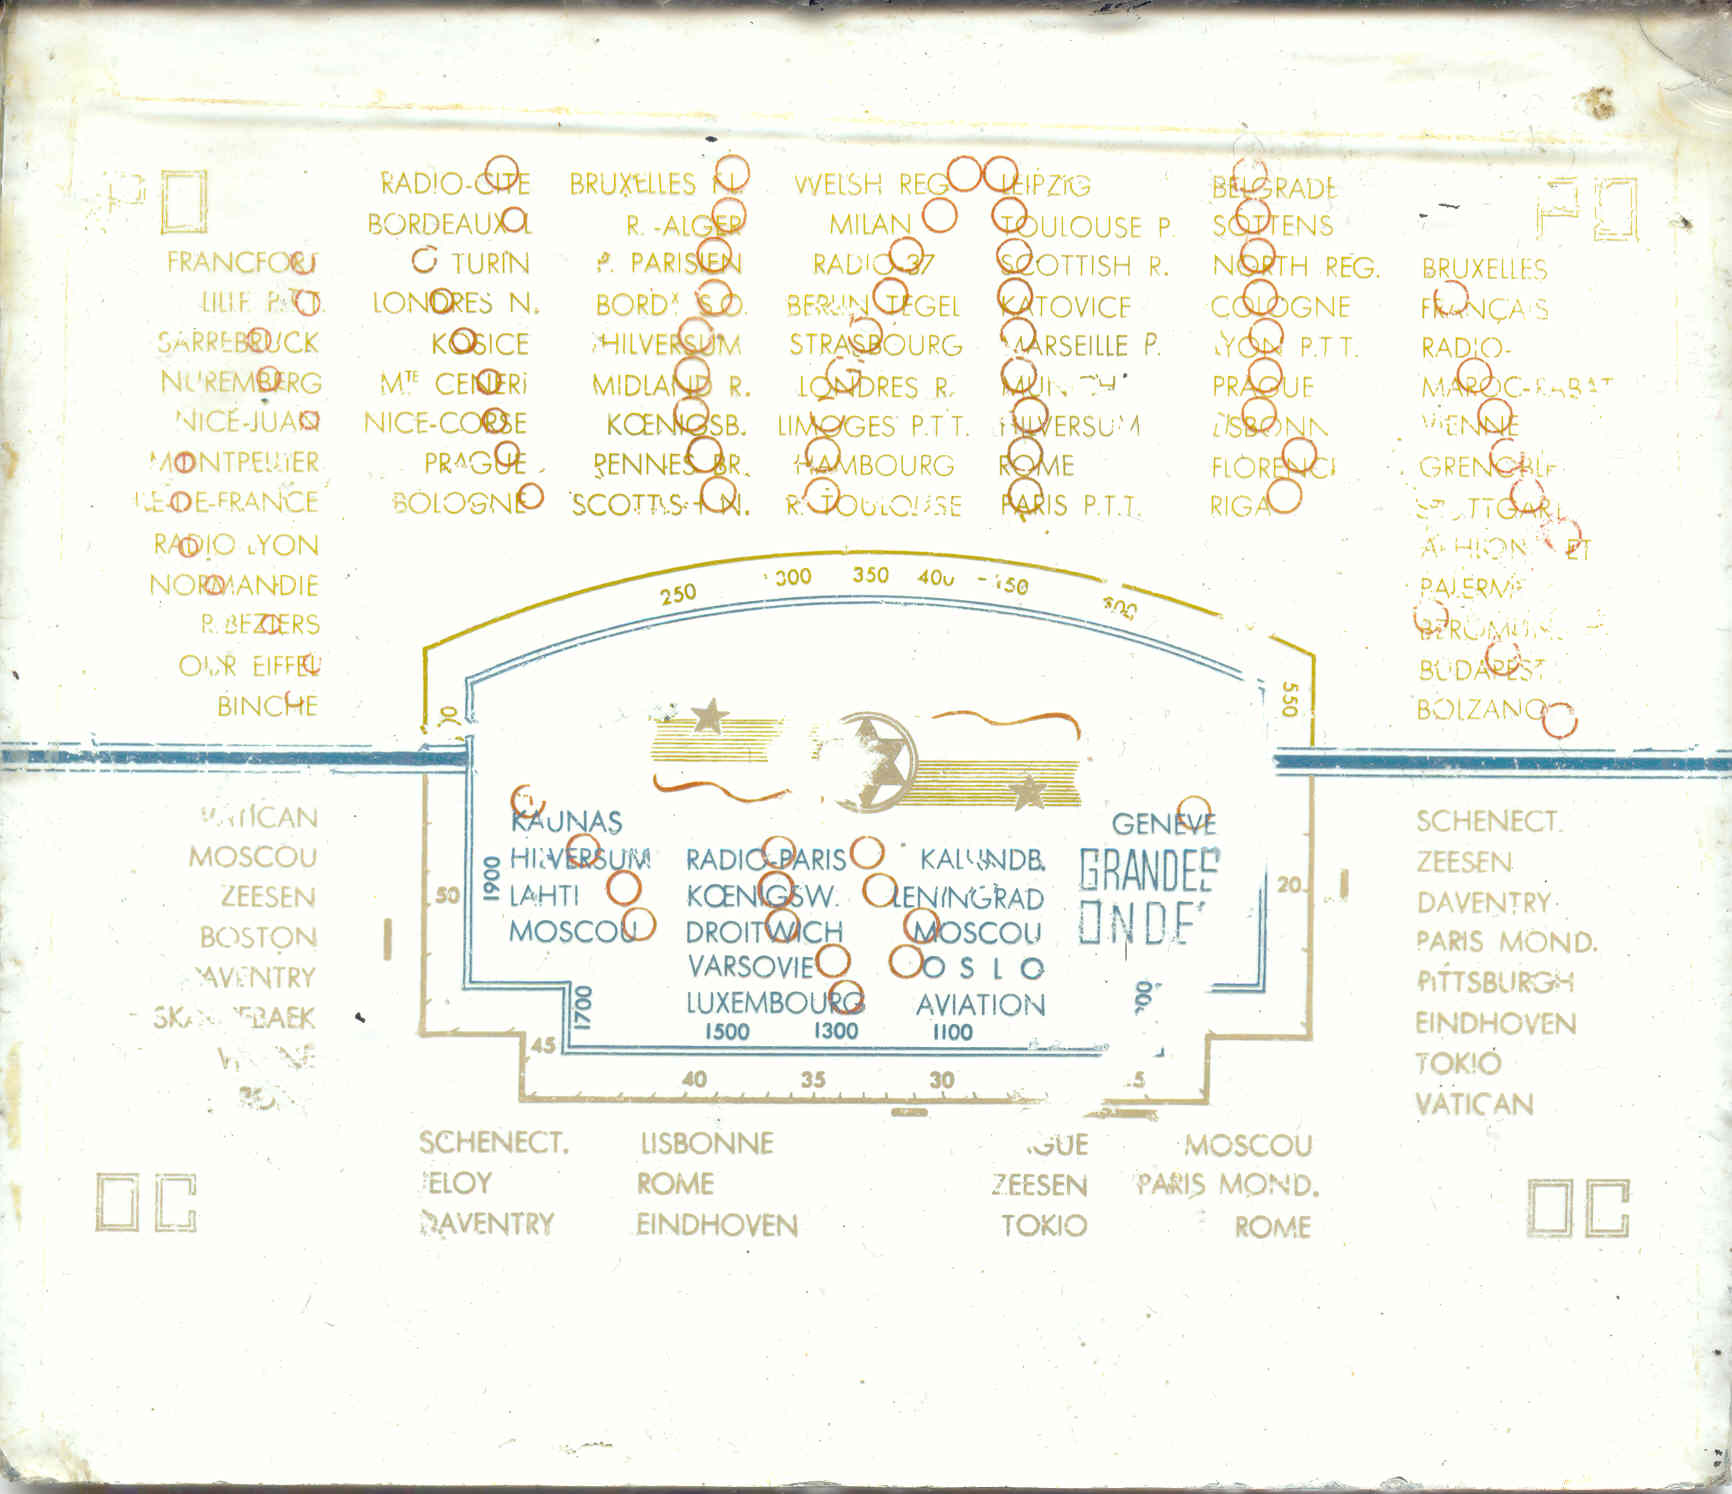 PO
PO
FRANCFORT
LILLE P.T.T.
SARREBRUCK
NUREMBERG
NICE-JUAN
MONTPELLIER
ILE-DE-FRANCE
RADIO LYON
NORMANDIE
R. BEZIERS
OUR EIFFEL
BINCHE
RADIO-CITE
BORDEAUX L
TURIN
LONDRES N.
KOSICE
MTE CENERI
NICE-CORSE
PRAGUE
BOLOGNE
BRUXELLES FL.
R.-ALGER
P. PARISIEN
BORDX S.O.
HILVERSUM
MIDLAND R.
KŒNIGSB.
RENNES BR.
SCOTTISH N.
WELSH REG
MILAN
RADIO 37
BERLIN TEGEL
STRASBOURG
LONDRES R.
LIMOGES P.T.T.
HAMBOURG
R. TOULOUSE
LEIPZIG
TOULOUSE P.
SCOTTISH R.
KATOVICE
MARSEILLE P.
HILVERSUM
ROME
PARIS P.T.T.
BELGRADE
SOTTENS
NORTH REG.
COLOGNE
LYON P.T.T.
PRAGUE
LISBONN
FLORENCE
RIGA
BRUXELLES
FRANÇAIS
RADIO-
MAROC-RABAT
VIENNE
GRENOBLE
STUTTGART
PALERME
BEROMUN
BUDAPEST
BOLZANO
250 300 350 400 450 500
550
KAUNAS
HILVERSUM
LAHTI
MOSCOU
RADIO-PARIS
KŒNIGSW.
DROITWICH
VARSOVIE
LUXEMBOURG
KALUNDB.
LENINGRAD
MOSCOU
OSLO
AVIATION
GENEVE
GRANDES
ONDES
1900
1700
1500 1300 1100
50
20
45
40 35 30
VATICAN
MOSCOU
ZEESEN
BOSTON
DAVENTRY
SKAMLEBAEK
SCHENECT.
ZEESEN
DAVENTRY
PARIS MOND.
PITTSBURGH
EINDHOVEN
TOKIO
VATICAN
SCHENECT.
ELOY
DAVENTRY
LISBONNE
ROME
EINDHOVEN
ZEESEN
TOKIO
MOSCOU
PARIS MOND.
ROME
OC
OC